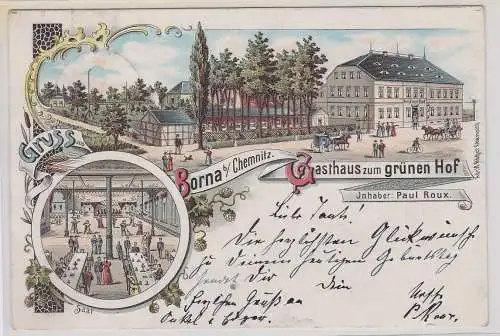 Gruss
Borna b/ Chemnitz.
Gasthaus zum grünen Hof
Inhaber: Paul Roux.
Saal
Liebe Tante!
Die herzlichsten Glückwünsche
zu Deinem heutigen Geburtstag
sendet Dir Dein Neffe
Herzlichen Gruß an P. Roux.
Onkel u.